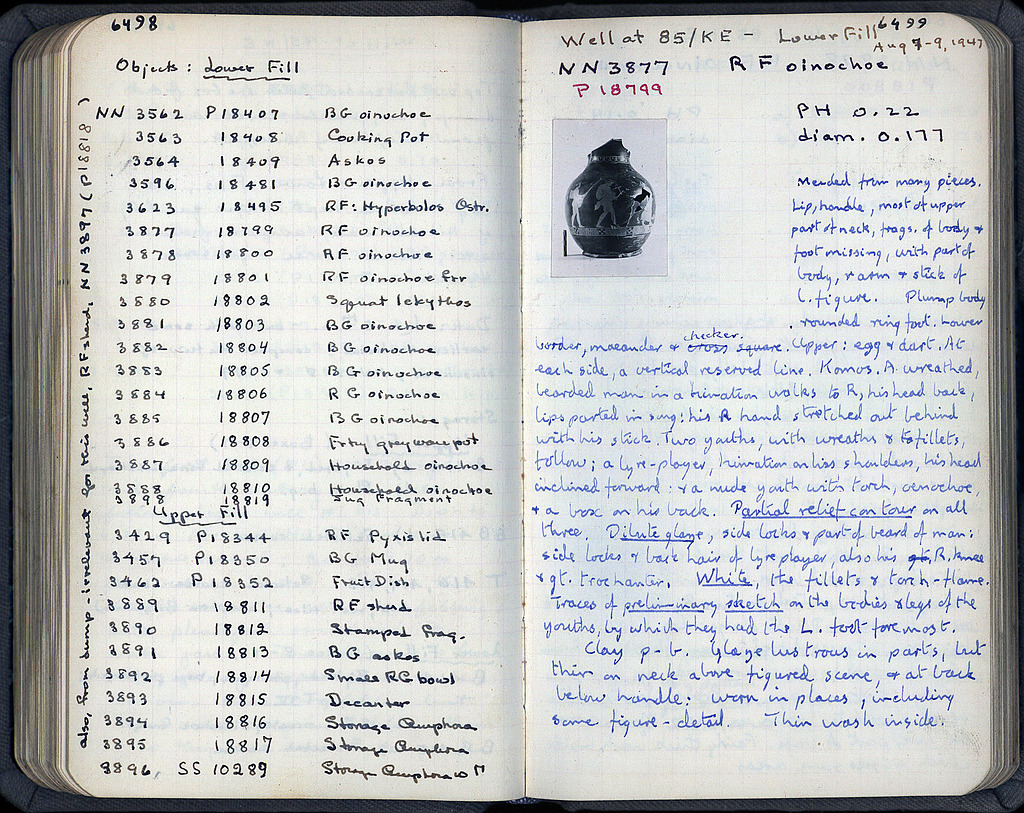 6498
Objects: Lower Fill
NN 3562 P18407 BG oinochoe
3563 18408 Cooking Pot
3564 18409 Askos
3596 18481 BG oinochoe
3623 18495 RF: Hyperbolos Ostr.
3877 18799 RF oinochoe
3878 18800 RF oinochoe
3879 18801 RF oinochoe frr
3880 18802 Squat lekythos
3881 18803 BG oinochoe
3882 18804 BG oinochoe
3883 18805 BG oinochoe
3884 18806 RG oinochoe
3885 18807 BG oinochoe
3886 18808 Fr greyware pot
3887 18809 Household oinochoe
3888 18810 Household oinochoe
3898 18819 Jug Fragment
Upper Fill
3429 P18344 RF Pyxis lid
3457 P18350 BG Mug
3462 P 18352 Fruit Dish
3889 18811 RF sherd
3890 18812 Stamped frag.
3891 18813 BG askos
3892 18814 Small RG bowl
3893 18815 Decanter
3894 18816 Storage Amphora
3895 18817 Storage Amphora
3896, SS 10289 Storage Amphora
also, from dump - irrelevant for this well, RF sherd, NN 3897 (P18818)
6499
Well at 85/KE - Lower Fill
Aug 7-9, 1947
NN3877 RF oinochoe
P 18799
PH 0.22
diam. 0.177
Mended from many pieces.
Lip, handle, most of upper
part of neck, frags. of body &
foot missing, with part of
body, r arm & stick of
l. figure. Plump body
rounded ring foot. Lower
border, maeander & cross square checker. Upper: egg & dart. At
each side, a vertical reserved line. Komos. A wreathed,
bearded man in a himation walks to R, his head back,
lips parted in song: his R hand stretched out behind
with his stick. Two youths, with wreaths & fillets,
follow; a lyre-player, himation on his shoulders, his head
inclined forward: & a nude youth with torch, oenochoe,
& a box on his back. Partial relief contour on all
three. Dilute glaze, side locks & part of beard of man:
side locks & back hair of lyre player, also his R. knee
& gt. trochanter. White, the fillets & torch-flame.
Traces of preliminary sketch on the bodies & legs of the
youths, by which they had the L. foot foremost.
Clay p-b. Glaze lustrous in parts, but
thin on neck above figured scene, & at back
below handle: worn in places, including
some figure-detail. Thin wash inside.